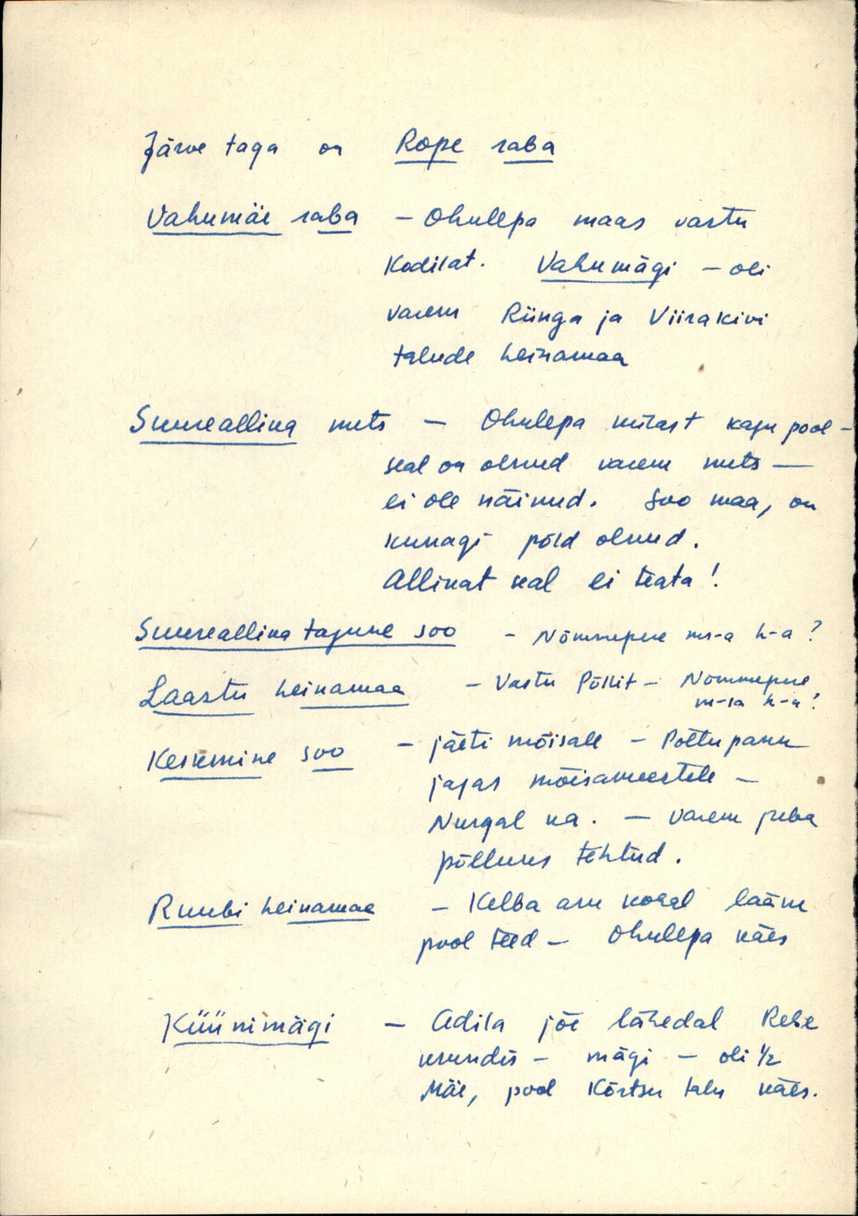 Järve taga on Rope raba
Vahumäe raba – Ohulepa maas vastu
Kodilat. Vahumägi – oli
varem Rünga ja Viirakivi
talude heinamaa
Suureallina mets – Ohulepa külast kagu pool –
seal on olnud varem mets –
ei ole näinud. Soo maa, on
kunagi põld olnud.
Allinat seal ei teata!
Suureallina tagune soo – Nõmmepere h-a?
Laastu heinamaa – Vastu Põllit – Nõmmepere
h-a!
Keskmine soo – jäeti mõisale – Põltu
jagas mõisameestele –
Nurgal ka. – varem juba
põlluks tehtud.
Ruubi heinamaa – Kelba aru lääne
pool teed – Ohulepa käes
Küünimägi – Adila jõe lähedal Rebe
– mägi – oli 1/2
Mäe, pool Kõrtsu talu käes.